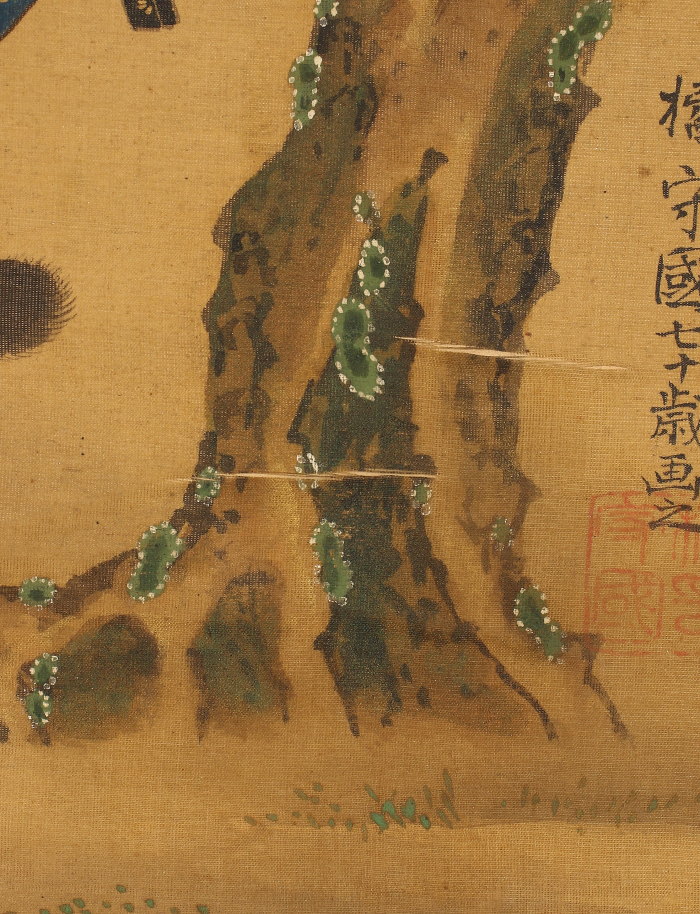 橘守國七十歳画之
守國